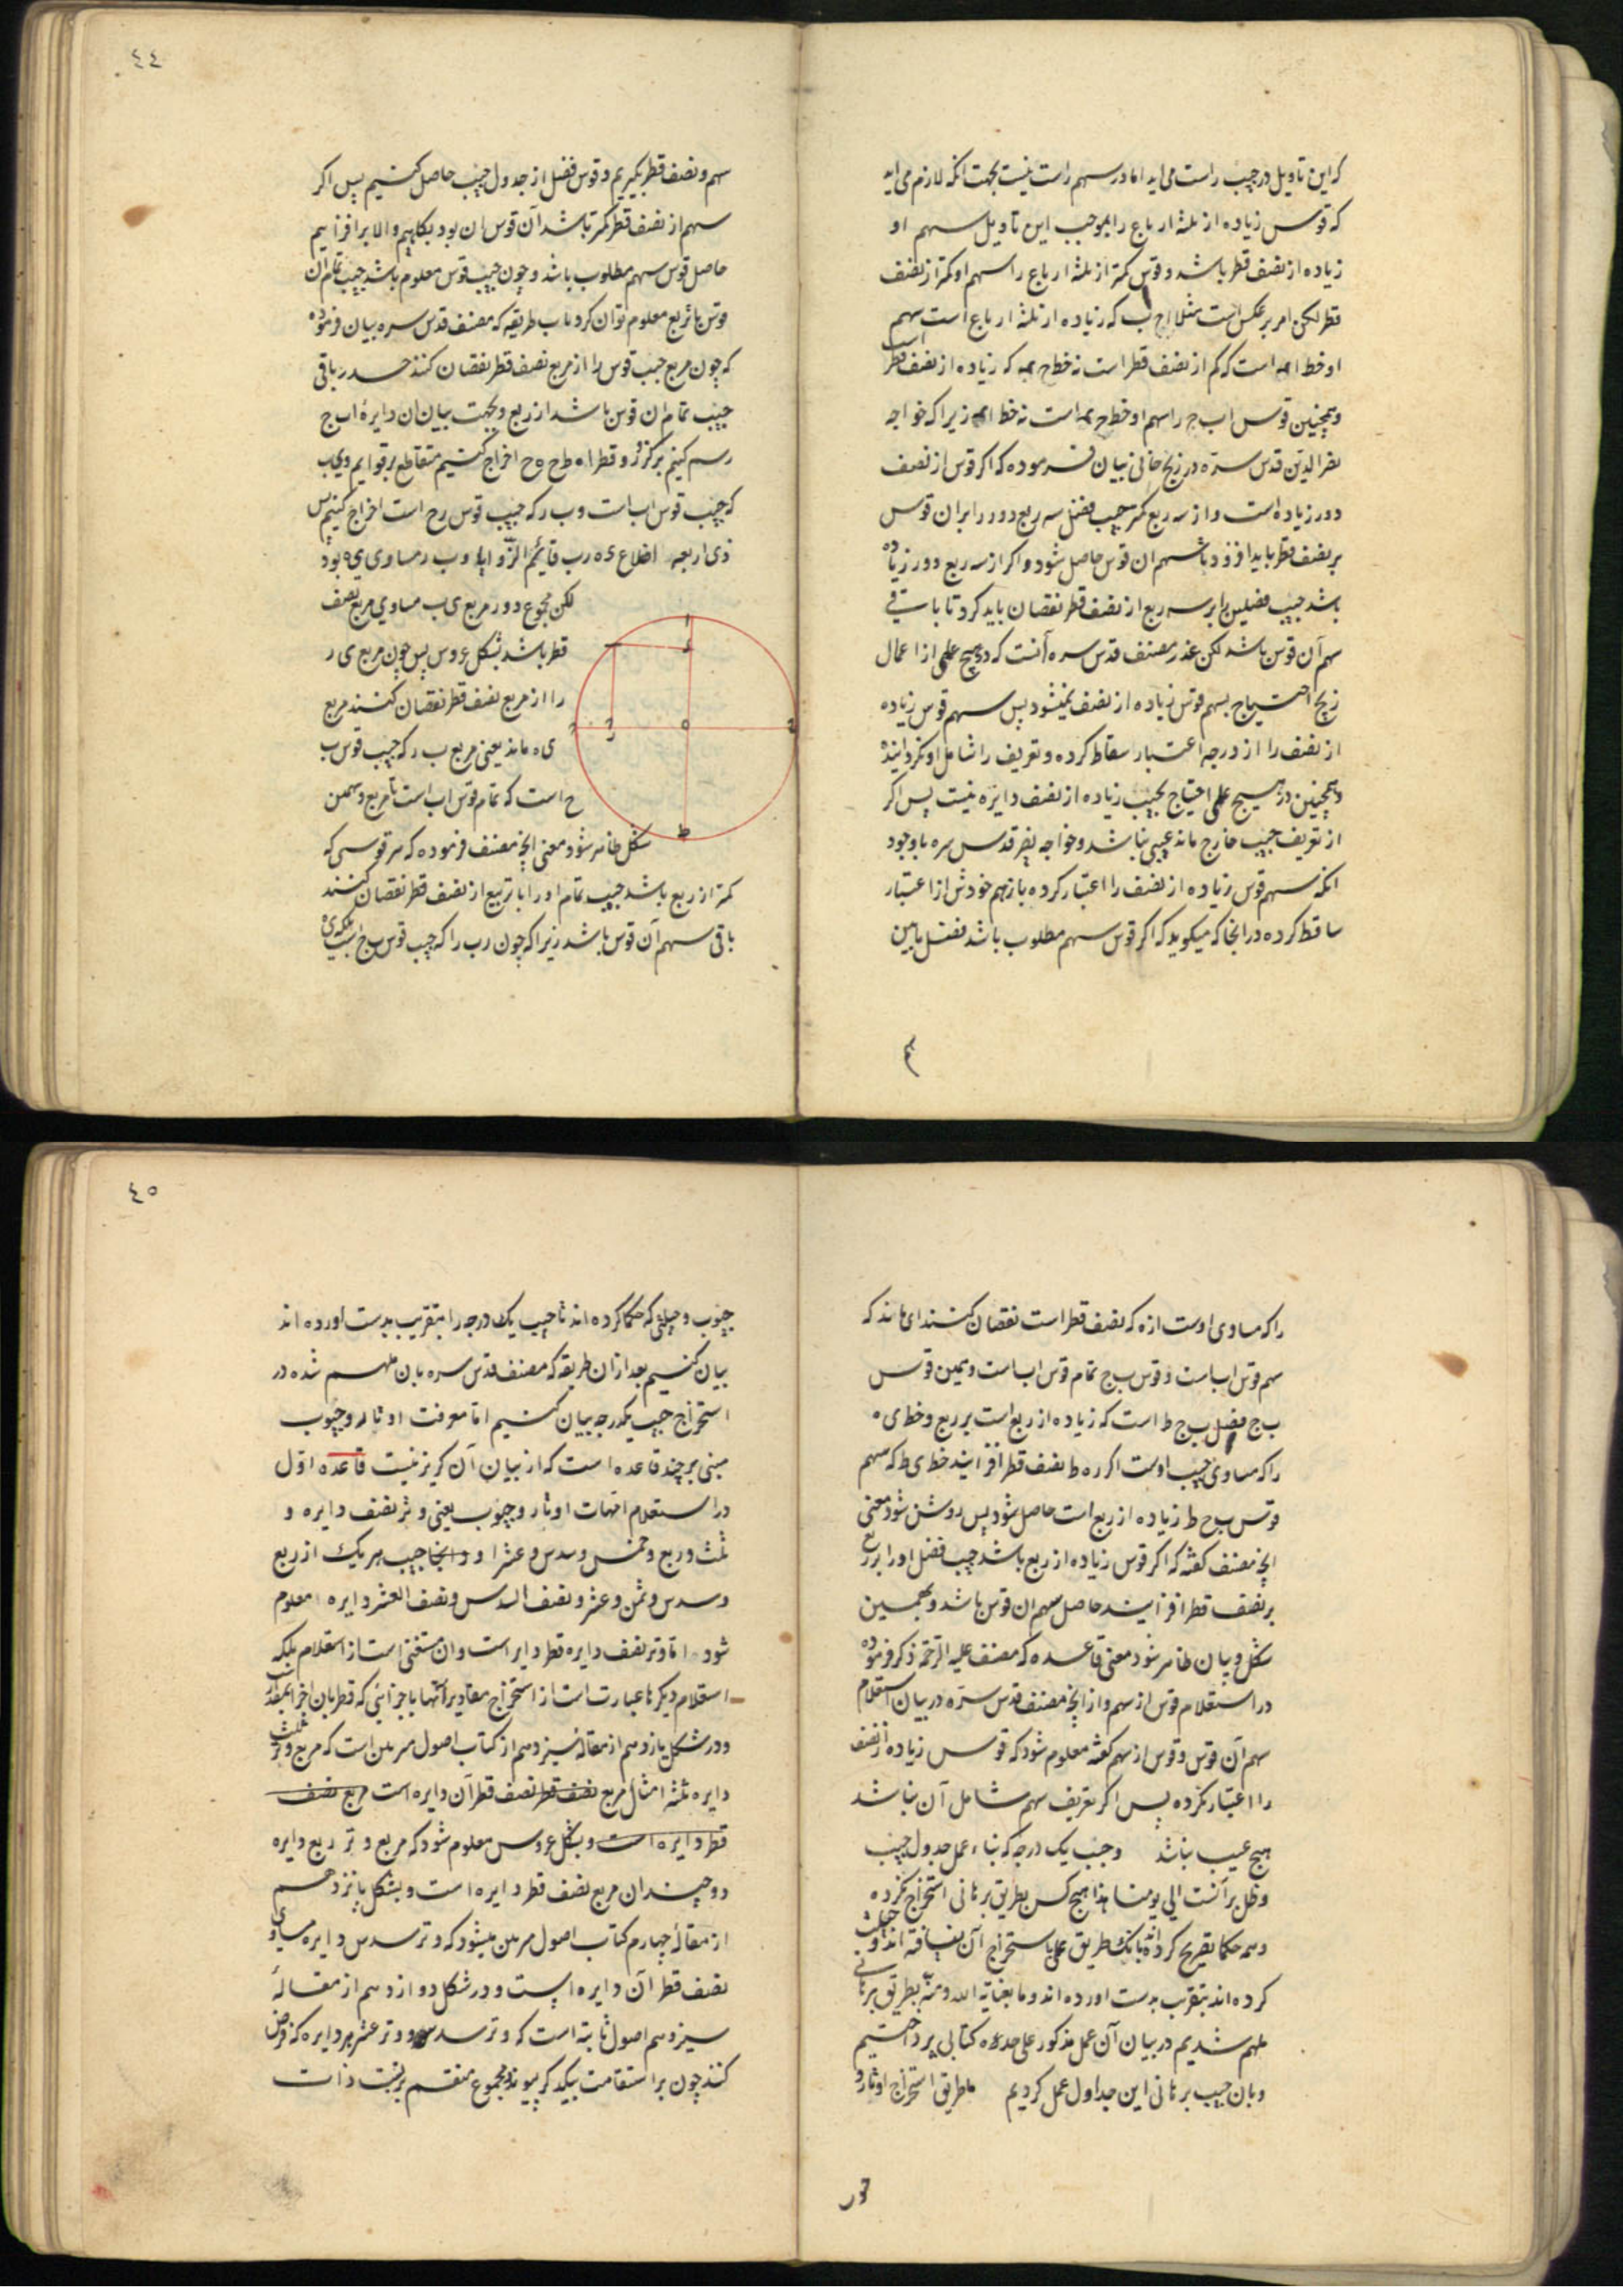 که این تاویل در جیب راست می اید اما در سهم راست نیست بجهت انکه لازم می اید
که قوس زیاده از ثلثه ارباع را بموجب این تاویل سهم او
زیاده از نصف قطر باشد و قوس کمتر از ثلثه ارباع را سهم او کمتر از نصف
قطر لکن امر بر عکس است مثلا اح ب که زیاده از ثلثه ارباع است سهم
او خط اء است که کم از نصف قطر است نه خط ح ء که زیاده از نصف قطر است
و همچنین قوس اب ج را سهم او خط ح ء است نه خط اء زیرا که خواجه
نصر الدین قدس سره در زیج خانی بیان فرموده که اگر قوس از نصف
دور زیاده است و از سه ربع کمتر جیب فضل سه ربع دور را بران قوس
بر نصف قطر باید افزود تا سهم ان قوس حاصل شود و اکر از سه ربع دور زیاده
باشد جیب فضلش را بر سه ربع از نصف قطر نقصان باید کرد تا باقی
سهم آن قوس باشد لکن عذر مصنف قدس سره آنست که در هیچ عملی از اعمال
زیج احتیاج بسهم قوس زیاده از نصف نمیشود پس سهم قوس زیاده
از نصف را از درجه اعتبار ساقط کرده و تعریف را شامل او نکردانیده
و همچنین در هیچ عملی احتیاج بجیب زیاده از نصف دایره نیست پس اکر
از تعریف جیب خارج ماند عیبی نباشد و خواجه نصر قدس سره باوجود
انکه سهم قوس زیاده از نصف را اعتبار کرده باز هم خودش از اعتبار
ساقط کرده در انجا که میکوید که اکر قوس سهم مطلوب باشد فضل مابین
سهم
٤٤
سهم و نصف قطر بکیریم و قوس فضل از جدول جیب حاصل کنیم پس اکر
سهم از نصف قطر کمتر باشد آن قوس از ص بکاهیم و الا برافزاییم
حاصل قوس سهم مطلوب باشد و چون جیب قوس معلوم باشد جیب تمام ان
قوس تا ربع معلوم توان کرد باین طریقه که مصنف قدس سره بیان فرموده
که چون مربع جیب قوس را از مربع نصف قطر نقصان کنند جذر باقی
جیب تمام ان قوس باشد از ربع و بجهت بیان ان دایره اب ج
رسم کنیم بر مرکز ه و قطر ا ه ط ح ه ج اخراج کنیم متقاطع بر قوایم و ی ب
که جیب قوس اب است و ب ر که جیب قوس ب ح است اخراج کنیم پس
ذی اربعه اضلاع ی ه ر ب قایم الزوایا و ب ر مساوی ی ه بود
لکن مجموع دو مربع ی ب مساوی مربع نصف
قطر باشد بشکل عروس پس چون مربع ی ر
را از مربع نصف قطر نقصان کنند مربع
ی ه ماند یعنی مربع ب ر که جیب قوس ب
ح است که تمام قوس اب است تا ربع و بهمین
شکل ظاهر شود معنی انچه مصنف فرموده که هر قوسی که
کمتر از ربع باشد جیب تمام او را تا ربع از نصف قطر نقصان کنند
باقی سهم آن قوس باشد زیرا که چون رب را که جیب قوس ب ح است بلکه ی ه
ا
ی
ب
ح
ر
ه
ج
ط
را که مساوی اوست از ه که نصف قطر است نقصان کنند ای ماند که
سهم قوس اب است و قوس ب ح تمام قوس اب است و همین قوس
ب ج فضل ب ج ط است که زیاده از ربع است بر ربع و خط ی ه
را که مساوی جیب اوست اکر بر ه ط نصف قطر افزایند خط ی ط که سهم
قوس ب ح ط زیاده از ربع است حاصل شود پس روشن شود معنی
انچه مصنف کفته که اکر قوس زیاده از ربع باشد جیب فضل او را بر ربع
بر نصف قطر افزایند حاصل سهم ان قوس باشد و بهمین
شکل و بیان ظاهر شود معنی قاعده که مصنف علیه الرحمه ذکر فرموده
در استعلام قوس از سهم و از انچه مصنف قدس سره در بیان استعلام
سهم آن قوس و قوس از سهم کفته معلوم شود که قوس زیاده از نصف
را اعتبار نکرده پس اکر تعریف سهم شامل آن نباشد
هیچ عیب نباشد و جیب یک درجه که بناء عمل جدول جیب
و ظل بر آنست الی یومنا هذا هیچ کس بطریق برهانی استخراج نکرده
و همه حکما تصریح کرده اند بانکه طریق عملی باستخراج آن نیافته اند و حیلت
کرده اند بتقریب بدست اورده اند و ما بعنایة الله و منه بطریق برهانی
ملهم شدیم در بیان آن عمل مذکور علی حده کتابی پرداختیم
و بان جیب برهانی این جداول عمل کردیم ما طریق استخراج اوتار و
جیوب
٤٥
جیوب و حیلتی که حکما کرده اند تا جیب یک درجه را بتقریب بدست اورده اند
بیان کنیم بعد ازان طریقه که مصنف قدس سره بان ملهم شده در
استخراج جیب یکدرجه بیان کنیم اما معرفت اوتار و جیوب
مبنی بر چند قاعده است که از بیان آن کریز نیست قاعده اول
در استعلام امهات اوتار و جیوب یعنی وتر نصف دایره و
ثلث و ربع و خمس و سدس و عشر او و انجا جیب هر یک از ربع
و سدس و ثمن و عشر و نصف السدس و نصف العشر دایره معلوم
شود اما وتر نصف دایره قطر دایره است و ان مستغنی است از استعلام بلکه
استعلام دیکرها عبارت است از استخراج مقادیر آنها باجزائی که قطر بان اجزا مقدر است
و در شکل یازدهم از مقاله سیزدهم از کتاب اصول مبرهن است که مربع وتر ثلث
دایره ثلثه امثال مربع نصف قطر نصف قطر آن دایره است مربع نصف
قطر دایره است و بشکل عروس معلوم شود که مربع وتر ربع دایره
دو چندان مربع نصف قطر دایره است و بشکل پانزدهم
از مقاله چهارم کتاب اصول مبرهن میشود که وتر سدس دایره مساوی
نصف قطر آن دایره است و در شکل دوازدهم از مقاله
سیزدهم اصول ثابته است که وتر سدس و وتر عشر هر دایره که فرض
کنند چون بر استقامت بیکدکر پیوندد مجموع منقسم بر نسبت ذات